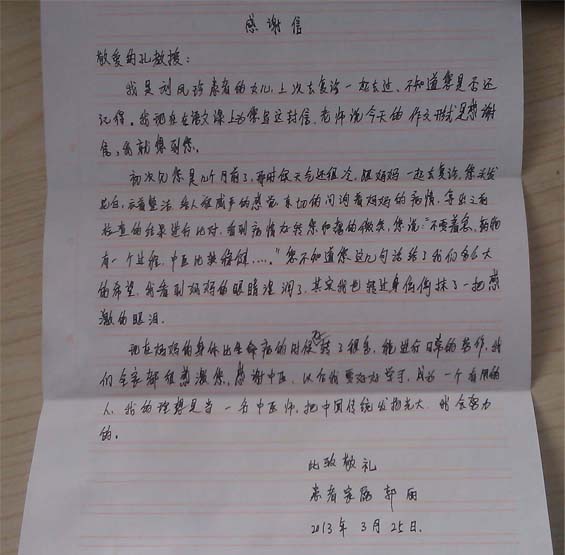 感谢信
敬爱的孔教授：
我是刘凤珍患者的女儿，上次去复诊一起去过，不知道您是否还
记得。我现在在语文课上为您写这封信，老师说今天的作文形式是感谢
信，我就想到您。
初次见您是几个月前了，那时候天气还很冷，跟妈妈一起去复诊，您头发
花白，衣着整洁 给人很威严的感觉 亲切的问询着妈妈的病情，拿出之前
检查的结果进行比对，看到病情好转您和蔼的微笑，您说："不要着急，药物
有一个过程，中医比较稳健....."您不知道您这几句话给了我们多么大
的希望，我看到妈妈的眼睛湿润了，其实我也转过身偷偷抹了一把感
激的眼泪。
现在妈妈的身体比生病的时候好转了很多，能进行日常的劳作，我
们全家都很感激您，感谢中医，以后我要好好学习，成为一个有用的
人，我的理想是当一名中医师，把中国传统发扬光大，我会努力
的。
此致敬礼
患者家属 郭丽
2013年3月25日.